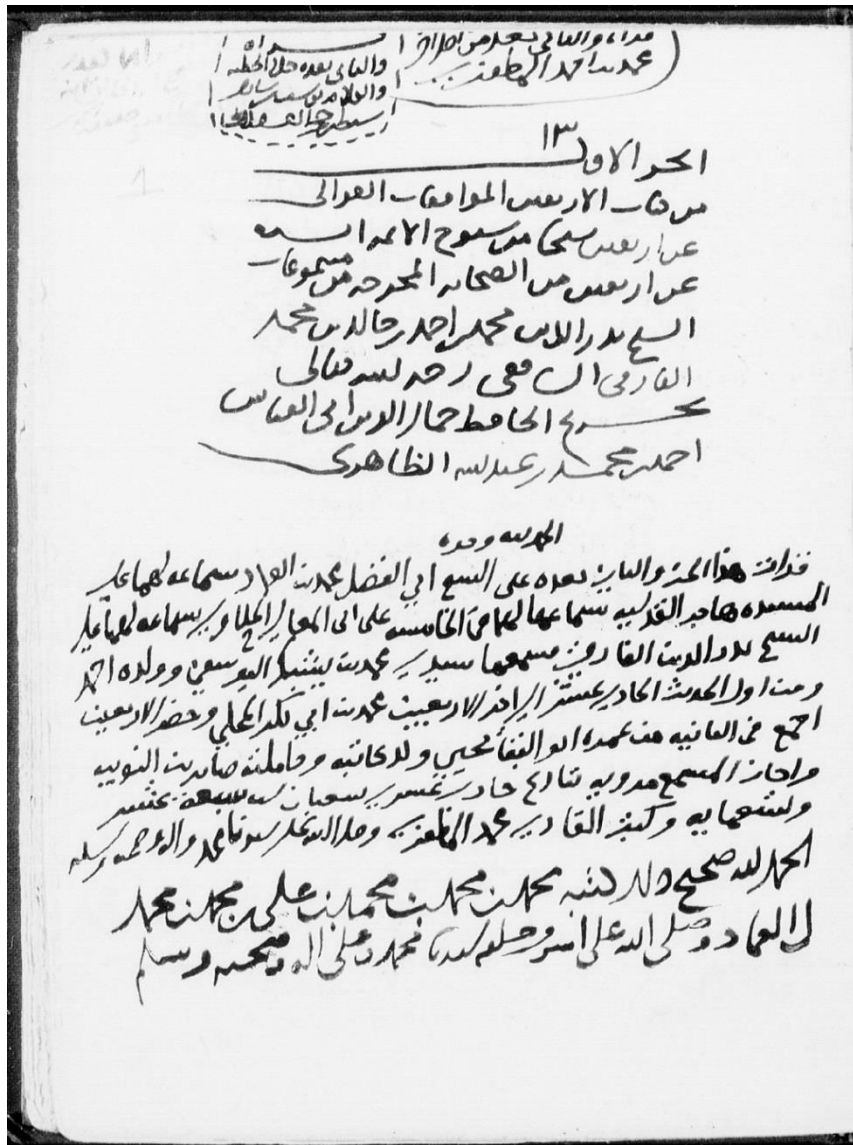 محمد بن احمد المظفري
والثاني بعده
١٣
الجز الاول
من كتاب الاربعين الموافقات العوالي
عن اربعين شيخا من شيوخ الائمة الستة
عن اربعين من الصحابه المخرجه من مسموعات
الشيخ بدر الدين محمد بن احمد بن خالد بن محمد
الفارقي الشافعي رحمه الله تعالى
تخريج الحافظ جمال الدين ابي العباس
احمد بن محمد بن عبد الله الظاهري
الحمد لله وحده
قرات هذا الجزء والثاني بعده على الشيخ ابي الفضل محمد بن العماد بسماعه لهما على
المسنده هاجر القدسيه بسماعها لهما في الخامسه على ابي المعالي الحلاوي بسماعه لهما على
الشيخ بدر الدين الفارقي فسمعهما سيدي محمد بن يشبك اليوسفي وولده احمد
ومن اول الحديث الحادي عشر الى اخر الاربعين محمد بن ابي بكر المحلي وحضر الاربعين
اجمع في الثانيه من عمره ابو البقا يحيى ولد كاتبه
واجاز المسمع مرويه بتاريخ حادي عشري شعبان سنه سبعة عشر
وتسعمايه وكتب القاري محمد المظفري وصلى الله على سيدنا محمد واله وصحبه وسلم
الحمد لله صحيح ذلك كتبه محمد بن محمد بن محمد بن علي بن محمد بن محمد
بن العماد وصلى الله على اشرف خلقه سيدنا محمد وعلى اله وصحبه وسلم